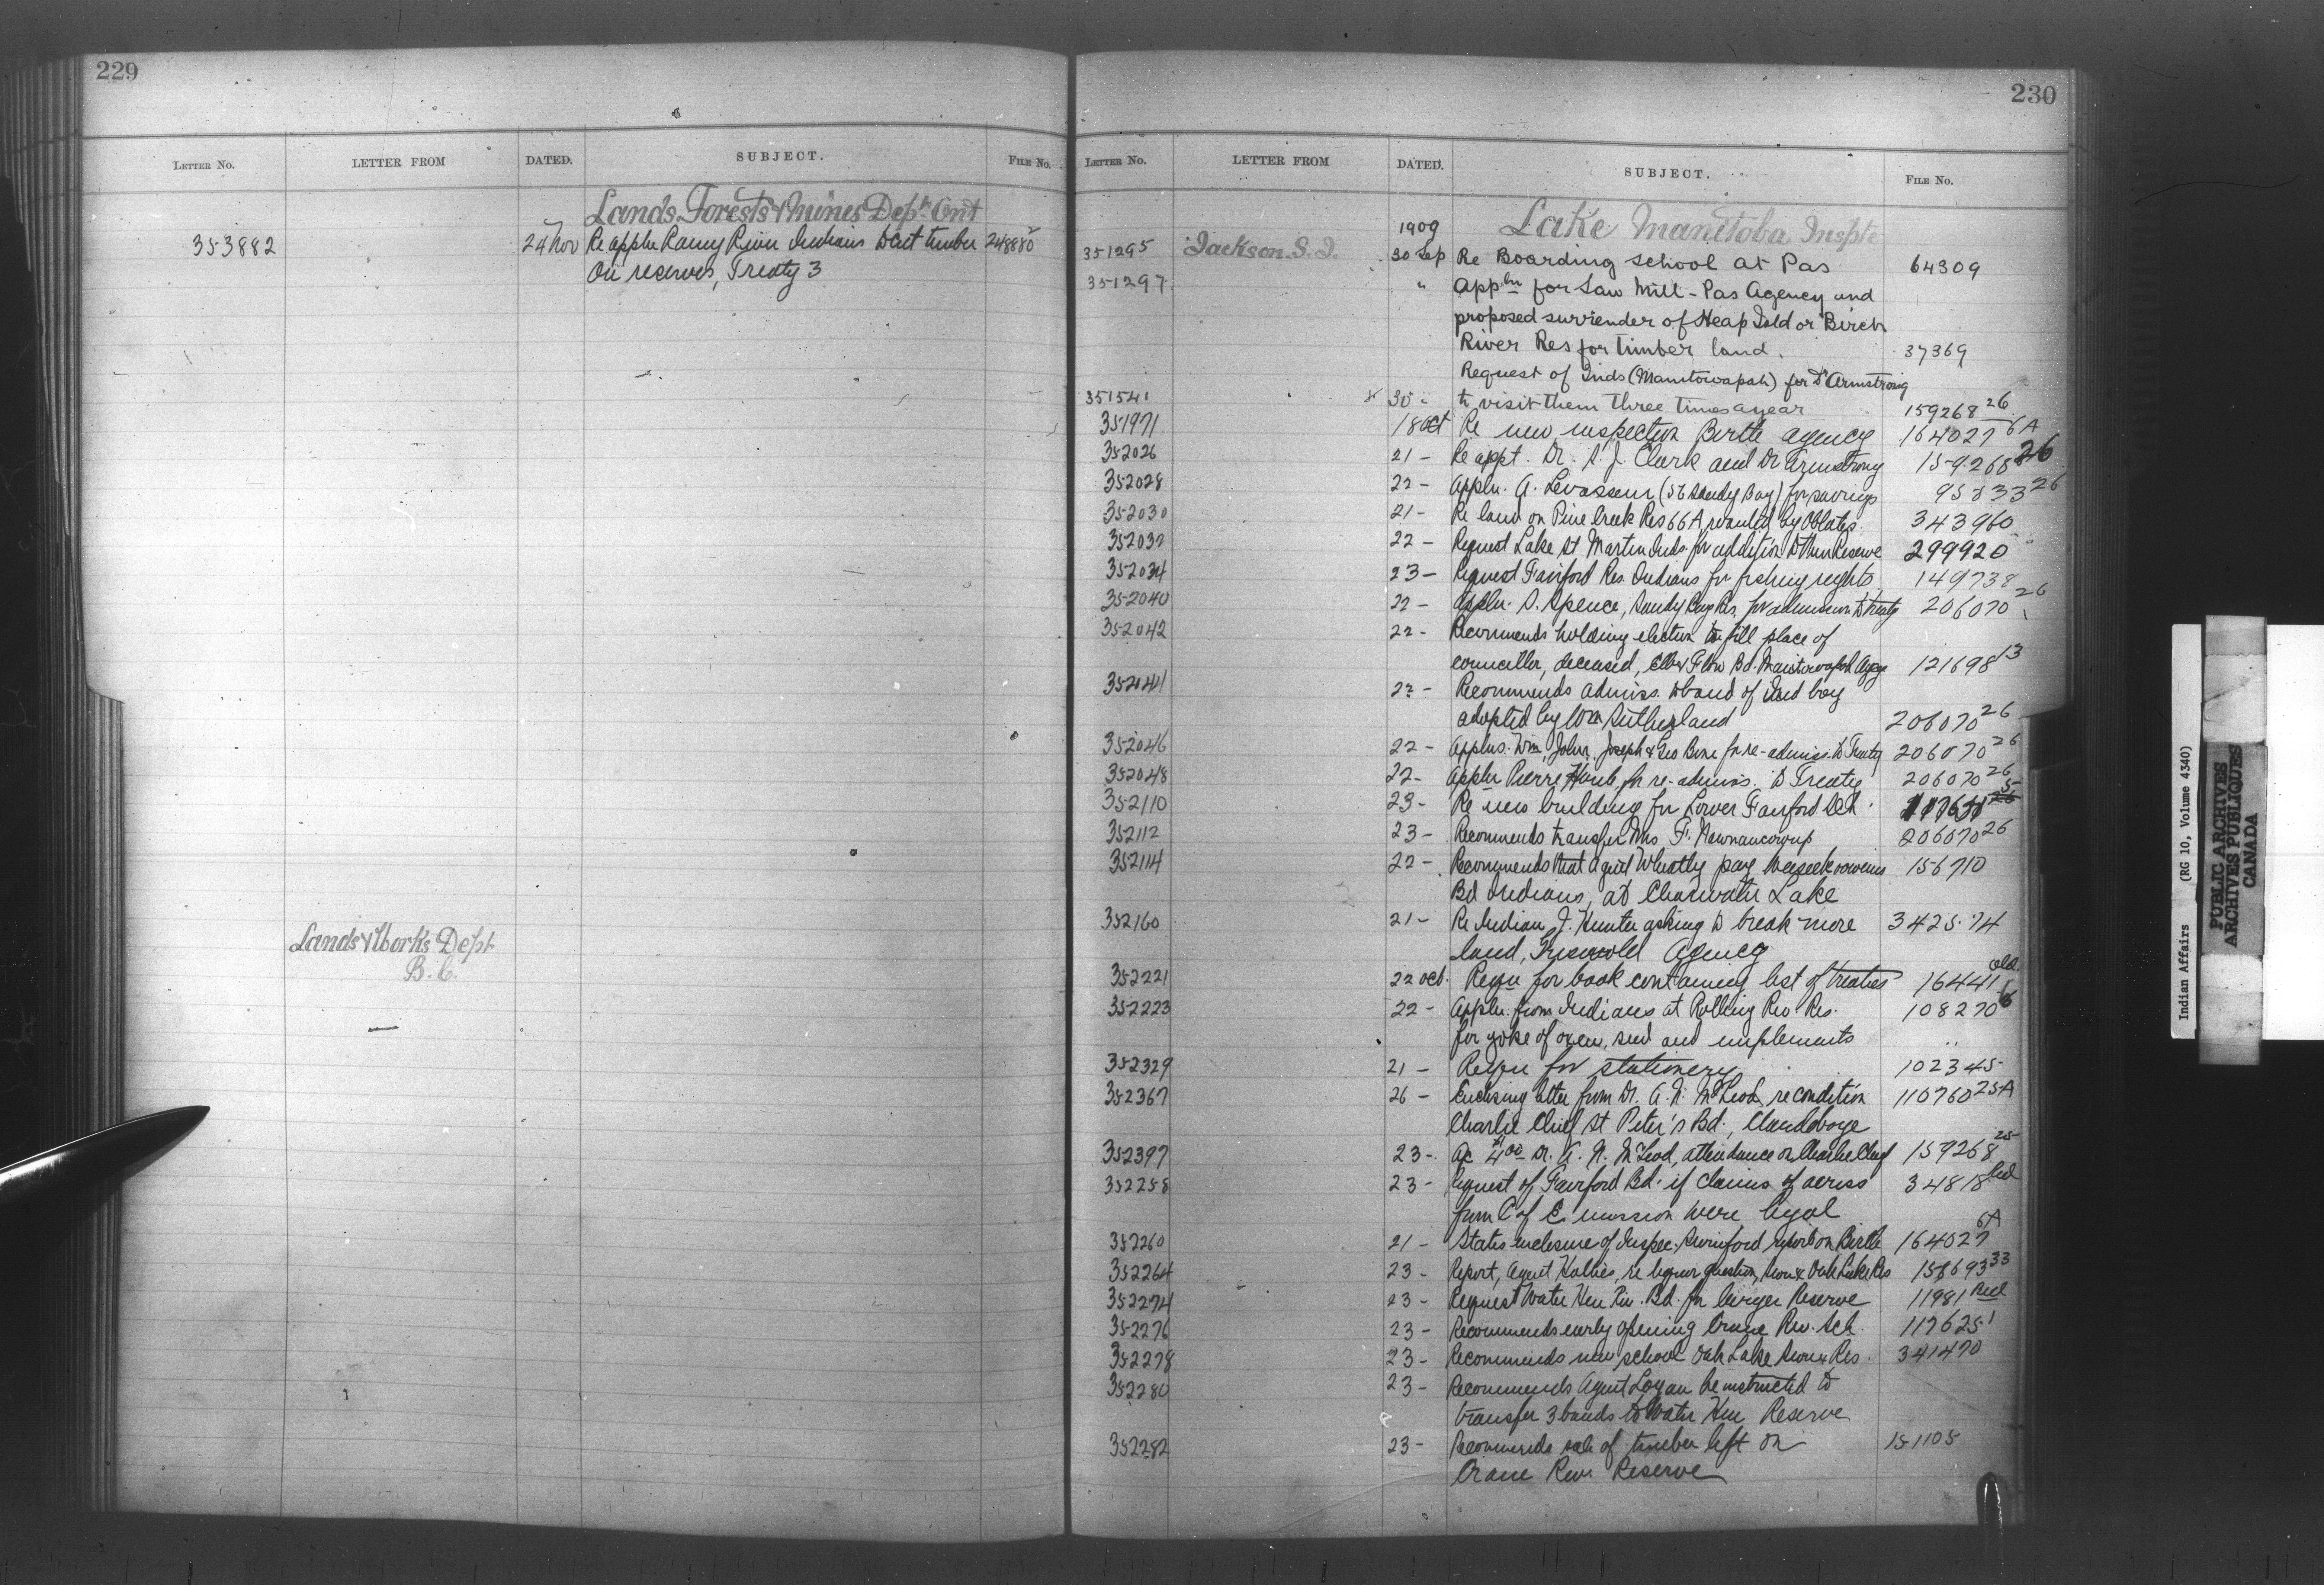 229
LETTER NO. LETTER FROM DATED. SUBJECT. FILE NO.
Lands Forests & Mines Dept. Ont
353882 24 Nov Re appln Rainy River Indians to cut timber 248880
on reserves, Treaty 3
Lands & Works Dept
B.C.
230
LETTER NO. LETTER FROM DATED. SUBJECT. FILE NO.
1909 Lake Manitoba Inspte
351295 Jackson. S. J. 30 Sep Re Boarding School at Pas 64309
351297 " Appln for Saw Mill - Pas Agency and
proposed surrender of Heap Told or Birch
River Res for timber land. 37369
Request of Inds (Manitowapah) for Dr Armstrong
351541 30 " to visit them three times a year 159268 26
351971 18 Oct Re new inspection Birtle agency 164027 6A
352026 21 - Re appt. Dr. S. J. Clark and Dr Armstrong 159268 26
352028 22 - Appln. A. Levasseur (56 Sandy Bay) for savings 95833 26
352030 21 - Re land on Pine Creek Res 66A wanted by Oblates. 343960
352032 22 - Request Lake St Martin Inds. for addition to their Reserve 299920
352034 23 - Request Fairford Res. Indians for fishing rights 149738
352040 22 - Appln. S. Spence, Sandy Bay Res. for admission to treaty 206070 26
352042 22 - Recommends holding election to fill place of
councillor, deceased, Ebb & Flow Bd. Manitowapah Agcy 121698 13
352044 22 - Recommends admiss. to band of Ind boy
adopted by Wm Sutherland 206070 26
352046 22 - Applns. Wm, John, Joseph & Geo Bone for re-admiss. to Treaty 206070 26
352048 22 - Appln Pierre Houle for re-admiss. to Treaty 206070 26
352110 23 - Re new building for Lower Fairford Sch. 5
352112 23 - Recommends transfer Mrs F. 206070 26
352114 22 - Recommends that agent Wheatly pay
156710
Bd Indians, at Clearwater Lake
352160 21 - Re Indian J. Hunter asking to break more 342574
land, Griswold Agency
352221 22 Oct. Reqn for book containing list of treaties 16441 Old
352223 22 - Appln. from Indians at Rolling Riv. Res. 108270 6
for yoke of oxen, seed and implements
352329 21 - Reqn for stationery 102345
352367 26 - Enclosing letter from Dr. A. N. McLeod, re condition 110760 25A
Charlie Chief St Peter's Bd., Clandeboye
352397 23 - Ac $4.00 Dr. A. N. McLeod, attendance on Charlie Chief 159268 25
352258 23 - Request of Fairford Bd. if claims of acress 34818 Red
from C of E. mission were legal
352260 21 - States enclosure of Inspec. Swinford report on Birtle 164027 6A
352264 23 - Report, Agent Hollies, re liquor question, Sioux Oak Lake Res 158693 33
352274 23 - Request Water Hen Riv. Bd. for larger Reserve 11981 Red
352276 23 - Recommends early opening Crane Riv. Sch. 117625 1
352278 23 - Recommends new school Oak Lake Sioux Res. 341470
352280 23 - Recommends Agent Logan be instructed to
transfer 3 bands to Water Hen Reserve
352282 23 - Recommends sale of timber left on 151105
Crane Riv. Reserve
Indian Affairs (RG 10, Volume 4340)
PUBLIC ARCHIVES
ARCHIVES PUBLIQUES
CANADA